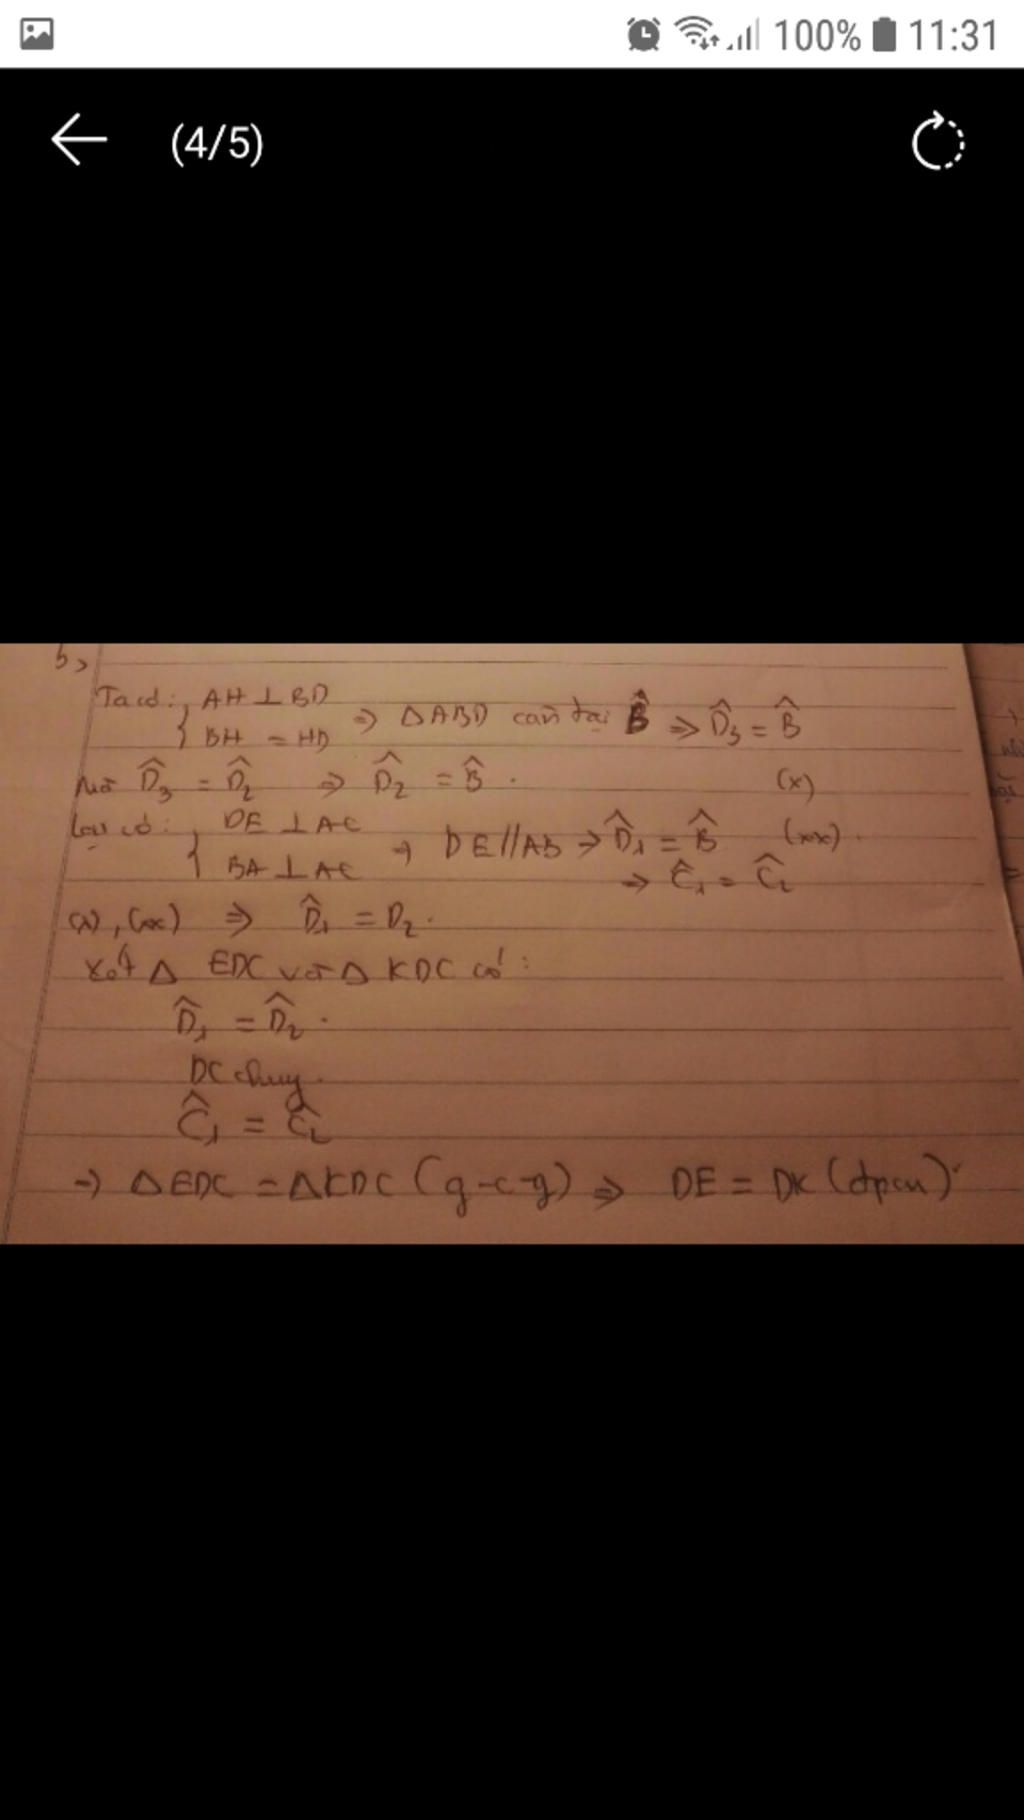 100% 11:31
(4/5)
b>
Ta có: { AH ⊥ BD
BH = HD
⇒ ΔABD cân tại B̂ ⇒ D̂₃ = B̂
Mà D̂₃ = D̂₂ ⇒ D̂₂ = B̂ . (x)
Lại có: { DE ⊥ AC
BA ⊥ AC
⇒ DE // AB ⇒ D̂₁ = B̂ (xx).
⇒ Ĉ₁ = Ĉ₂
(x), (xx) ⇒ D̂₁ = D₂.
Xét Δ EDC với Δ KDC có:
D̂₁ = D̂₂ .
DC chung.
Ĉ₁ = Ĉ₂
⇒ ΔEDC = ΔKDC (g-c-g) ⇒ DE = DK (đpcm)